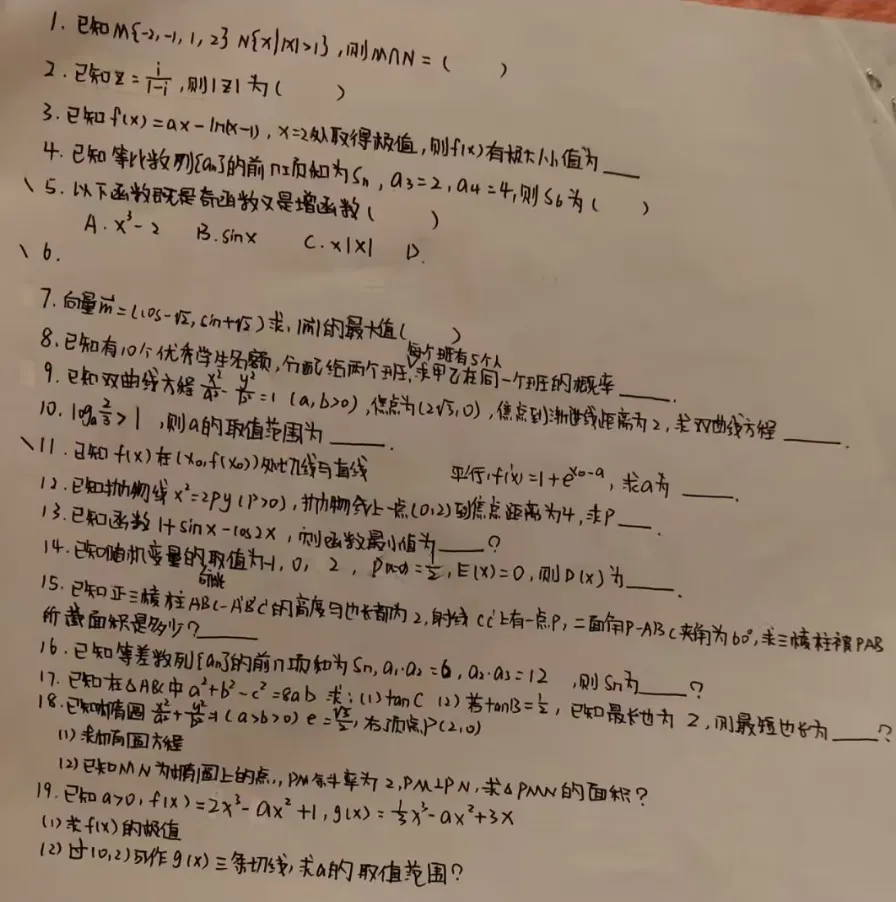 1. 已知M{-2,-1,1,2} N{x||x|>1},则M∩N=( )
2. 已知z=i/(1-i),则|z|为( )
3. 已知f(x)=ax-ln(x-1),x=2处取得极值,则f(x)有极大/小值为___
4. 已知等比数列{an}的前n项和为Sn,a3=2,a4=4,则S6为( )
\ 5. 以下函数既是奇函数又是增函数( )
A. x³-2 B. sinx C. x|x| D.
\ 6.
7. 向量m=(cos-√2,sin+√2)求,|m|的最大值( )
每个班有5个人
8. 已知有10个优秀学生名额,分配给两个班,求甲乙在同一个班的概率____.
9. 已知双曲线方程x²/a²-y²/b²=1(a,b>0),焦点为(2√3,0),焦点到渐进线距离为2,求双曲线方程____.
10. loga 2/3>1,则a的取值范围为____.
\ 11. 已知f(x)在(x0,f(x0))处切线与直线 平行,f'(x)=1+e^(x0-a),求a为____.
12. 已知抛物线x²=2py(p>0),抛物线上一点(0,2)到焦点距离为4,求p___.
13. 已知函数1+sinx-cos2x,则函数最小值为___?
14. 已知随机变量的取值为-1,0,2,P =1/2,E(X)=0,则D(x)为____.
15. 已知正三棱柱ABC-A'B'C'的高度与边长都为2,射线CC'上有一点P,二面角P-AB-C夹角为60°,求三棱柱被PAB
所截面积是多少?____
16. 已知等差数列{an}的前n项和为Sn,a1·a2=6,a2·a3=12,则Sn为___?
17. 已知在△ABC中a²+b²-c²=8ab 求:(1)tanC (2)若tanB=1/2,已知最长边为2,则最短边长为___?
18. 已知椭圆x²/a²+y²/b²=1(a>b>0) e=√3/2,右顶点P(2,0)
(1)求椭圆方程
(2)已知MN为椭圆上的点,,PM斜率为2,PM⊥PN,求△PMN的面积?
19. 已知a>0,f(x)=2x³-ax²+1,g(x)=1/3x³-ax²+3x
(1)求f(x)的极值
(2)过(0,2)可作g(x)三条切线,求a的取值范围?